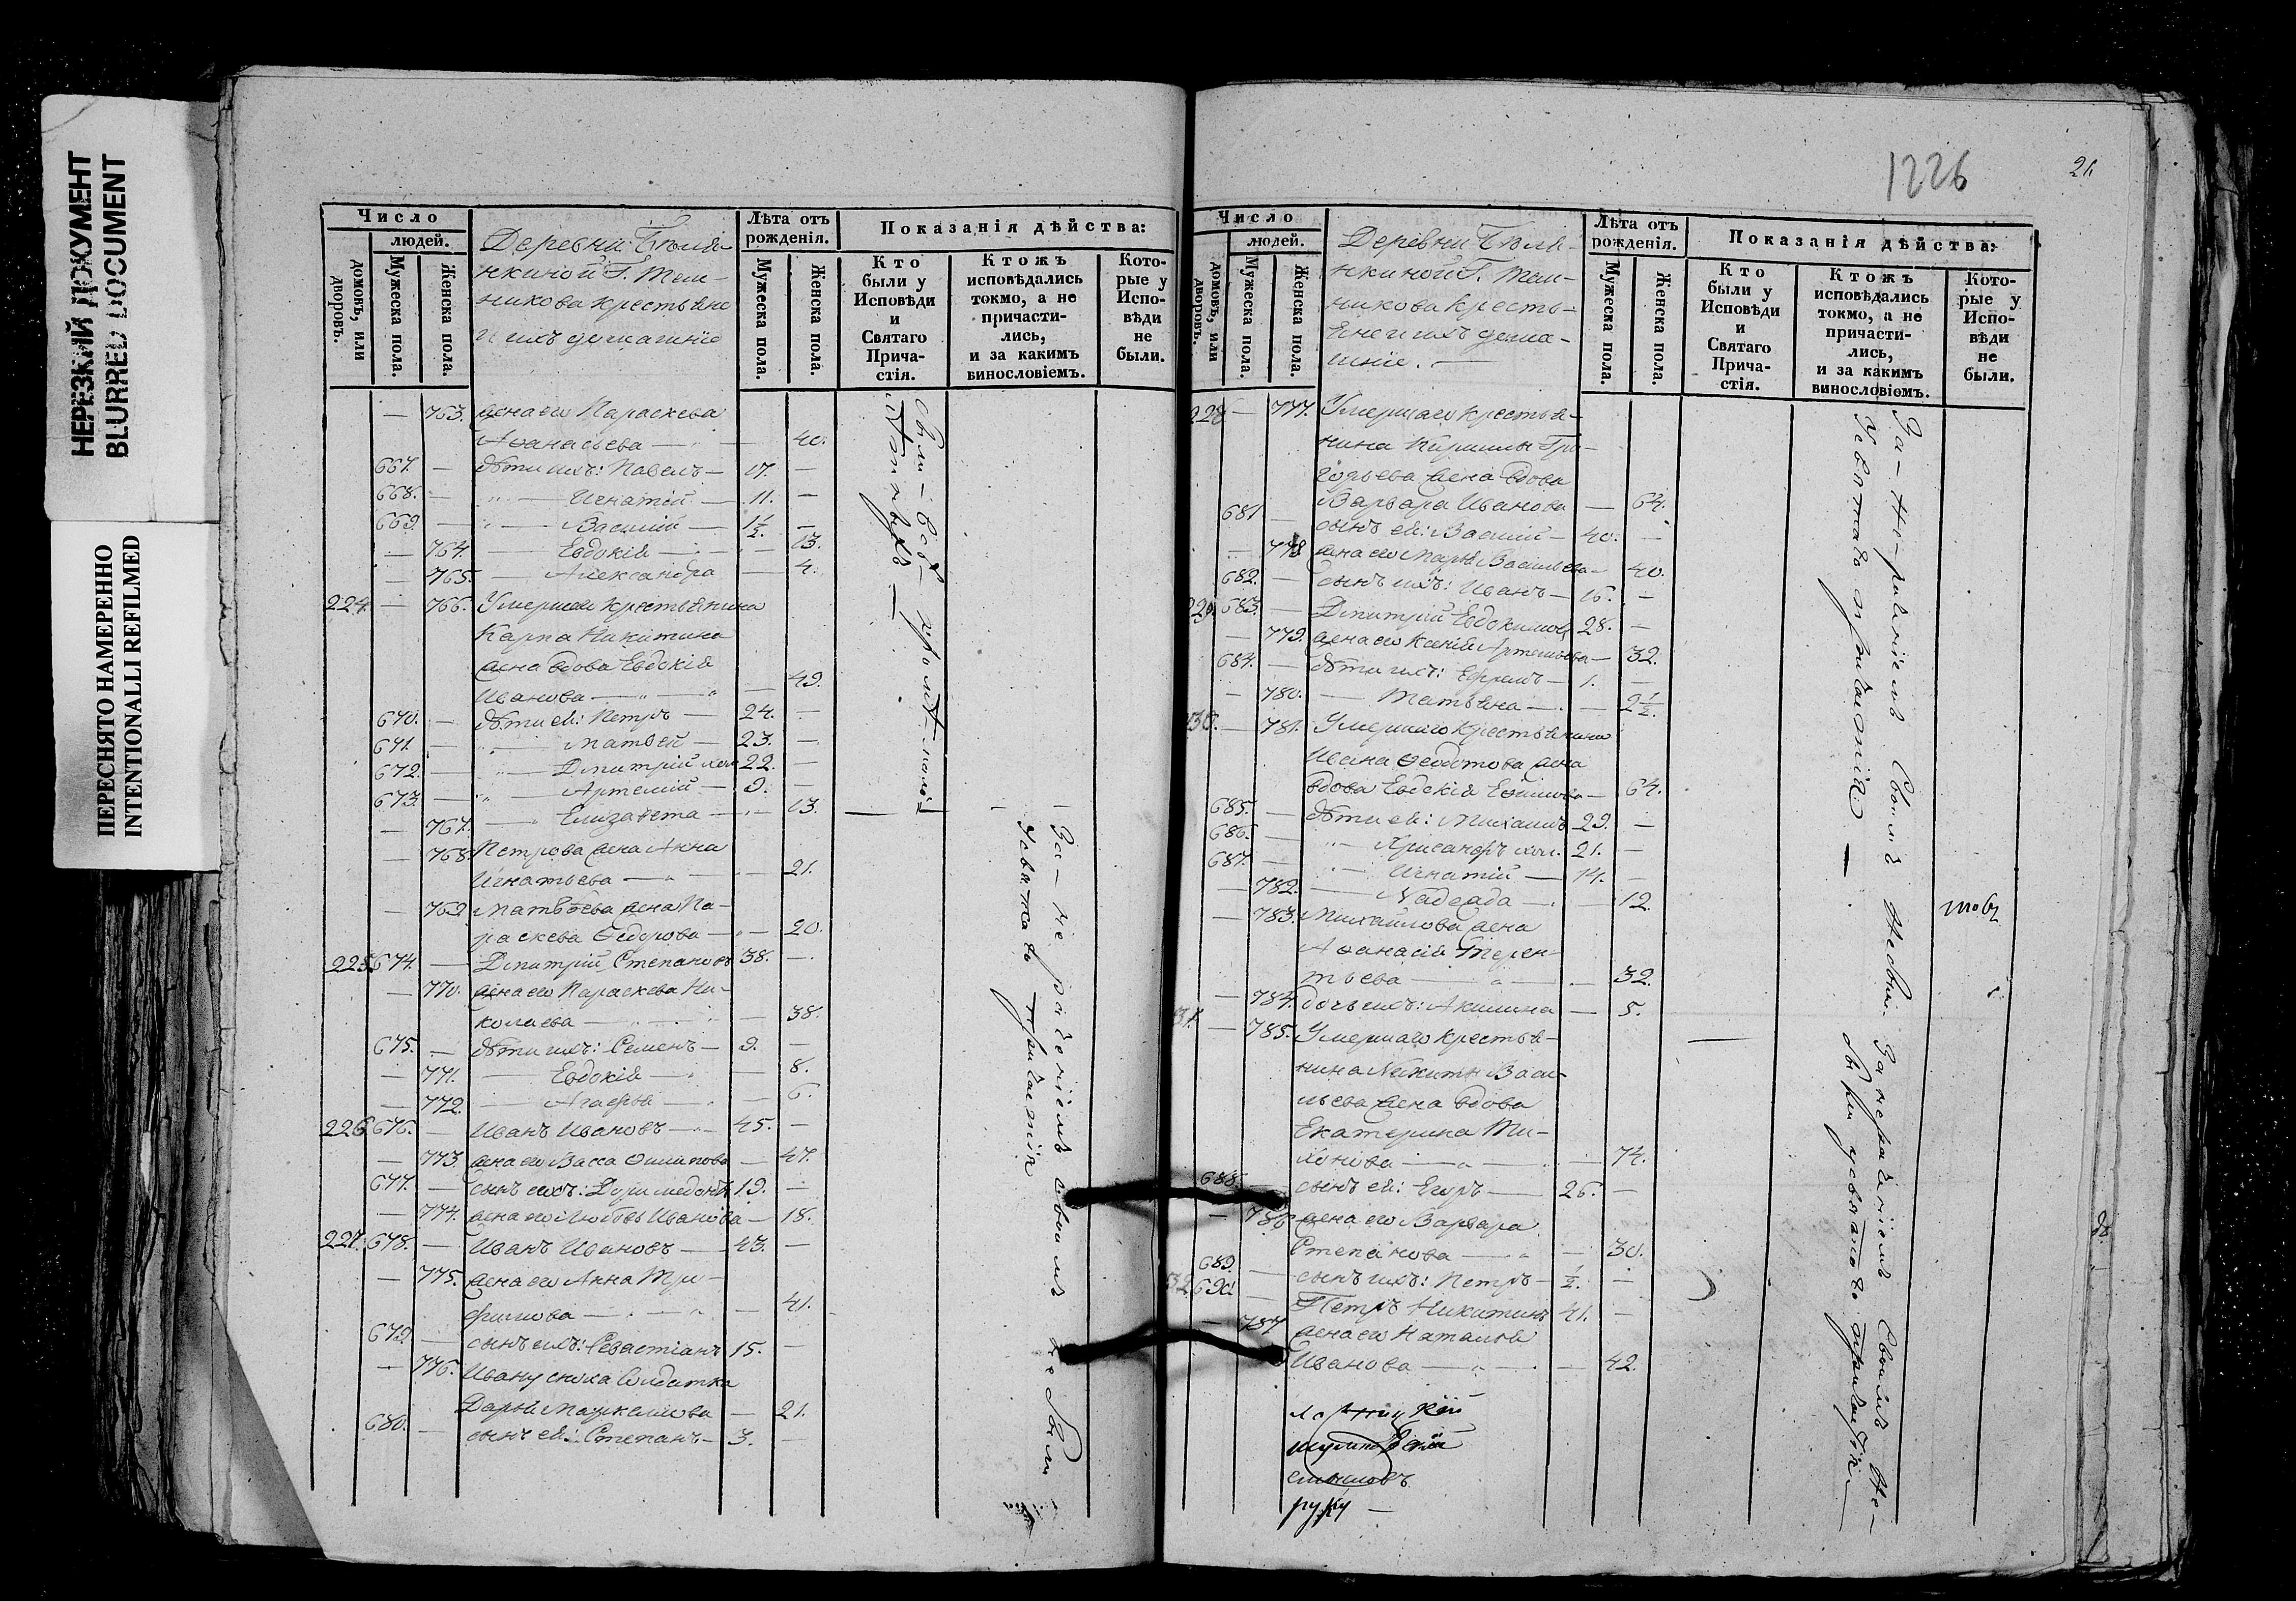 НЕРЕЗКИЙ ДОКУМЕНТ
BLURRED DOCUMENT
ПЕРЕСНЯТО НАМЕРЕННО
INTENTIONALLI REFILMED
Число
людей.
домовъ, или дворовъ.
Мужеска пола.
Женска пола.
Деревни Беля-
нкиной Г.
никова крестьяне
и ихъ домашніе
Лѣта отъ рожденія.
Мужеска пола.
Женска пола.
Показанія дѣйства:
Кто были у Исповѣди и Святаго Прича-стія.
Ктожъ исповѣдались токмо, а не причасти-лись, и за какимъ винословіемъ.
Кото-рые у Испо-вѣди не были.
— 763. жена его Параскева
Аѳанасьева — 40.
667. — дѣти ихъ: Павелъ — 17. —
668. — Игнатій — 11. —
669. — Василій — 1½. —
— 764. — Евдокія — 13.
— 765. — Александра — 4.
224. — 766. Умершаго крестьянина
Карпа Никитина
жена вдова Евдокія
Иванова — 49.
670. — дѣти ея: Петръ — 24. —
671. — Матвей — 23. —
672. — Дмитрій хол. 22. —
673. — Артемій — 9. —
— 767. — Елизавета — 13.
— 768. Петрова жена Анна
Игнатьева — 21.
— 769. Матвѣева жена Па-
раскева Ѳедорова — 20.
225. 674. — Дмитрій Степановъ 38. —
— 770. жена его Параскева Ни-
колаева — 38.
675. — дѣти ихъ: Семенъ — 9. —
— 771. — Евдокія — 8.
— 772. — Агафья — 6.
226. 676. — Иванъ Ивановъ — 45. —
— 773. жена его Васса Филипова — 47.
677. — сынъ ихъ: Доримедонтъ 19. —
— 774. жена его Любовь Иванова — 18.
227. 678. — Иванъ Ивановъ — 43. —
— 775. жена его Анна Три-
фонова — 41.
679. — сынъ ихъ: Севастіанъ 15. —
— 776. Ивану сноха Солдатка
Дарья Маркелова — 21.
680. — сынъ ея: Степанъ — 3. —
За нераченіемъ своимъ не были
у святаго причастія
1226
21.
Число
людей.
домовъ, или дворовъ.
Мужеска пола.
Женска пола.
Деревни Беля-
нкиной Г.
никова кресть-
яне и ихъ дома-
шніе. —
Лѣта отъ рожденія.
Мужеска пола.
Женска пола.
Показанія дѣйства:
Кто были у Исповѣди и Святаго Прича-стія.
Ктожъ исповѣдались токмо, а не причасти-лись, и за какимъ винословіемъ.
Кото-рые у Испо-вѣди не были.
228 — 777. Умершаго крестья-
нина Кирилы Гри-
горьева жена вдова
Варвара Иванова — 64.
681 — сынъ ея: Василій — 40. —
— 778 жена его Марья Васильева — 40.
682. — сынъ ихъ: Иванъ — 16. —
229 683. — Дмитрій Евдокимовъ 28. —
— 779. жена его Ксенія Артемьева — 32.
684. — дѣти ихъ: Ефремъ — 1. —
— 780. — Татьяна — 2½.
230. — 781. Умершаго крестьянина
Ивана Ѳедотова жена
вдова Евдокія Ефимова — 64.
685. — дѣти ея: Михаилъ 29. —
686. — Хрисанфъ хол. 21. —
687. — Игнатій — 14. —
— 782. — Надежда — 12.
— 783. Михайлова жена
Аѳанасія Терен-
тьева — 32.
— 784. дочь ихъ: Акилина — 5.
231. — 785. Умершаго крестья-
нина Никиты Васи-
льева жена вдова
Екатерина Ти-
хонова — 74.
688. — сынъ ея: Егоръ — 26. —
— 786 жена его Варвара
Степанова — 30.
689. — сынъ ихъ: Петръ — ½. —
232 690 — Петръ Никитинъ 41. —
— 787 жена его Наталья
Иванова — 42.
руку —
За нераченіемъ своимъ не были
у святаго причастія —
За нераченіемъ своимъ не
были у святаго причастія —